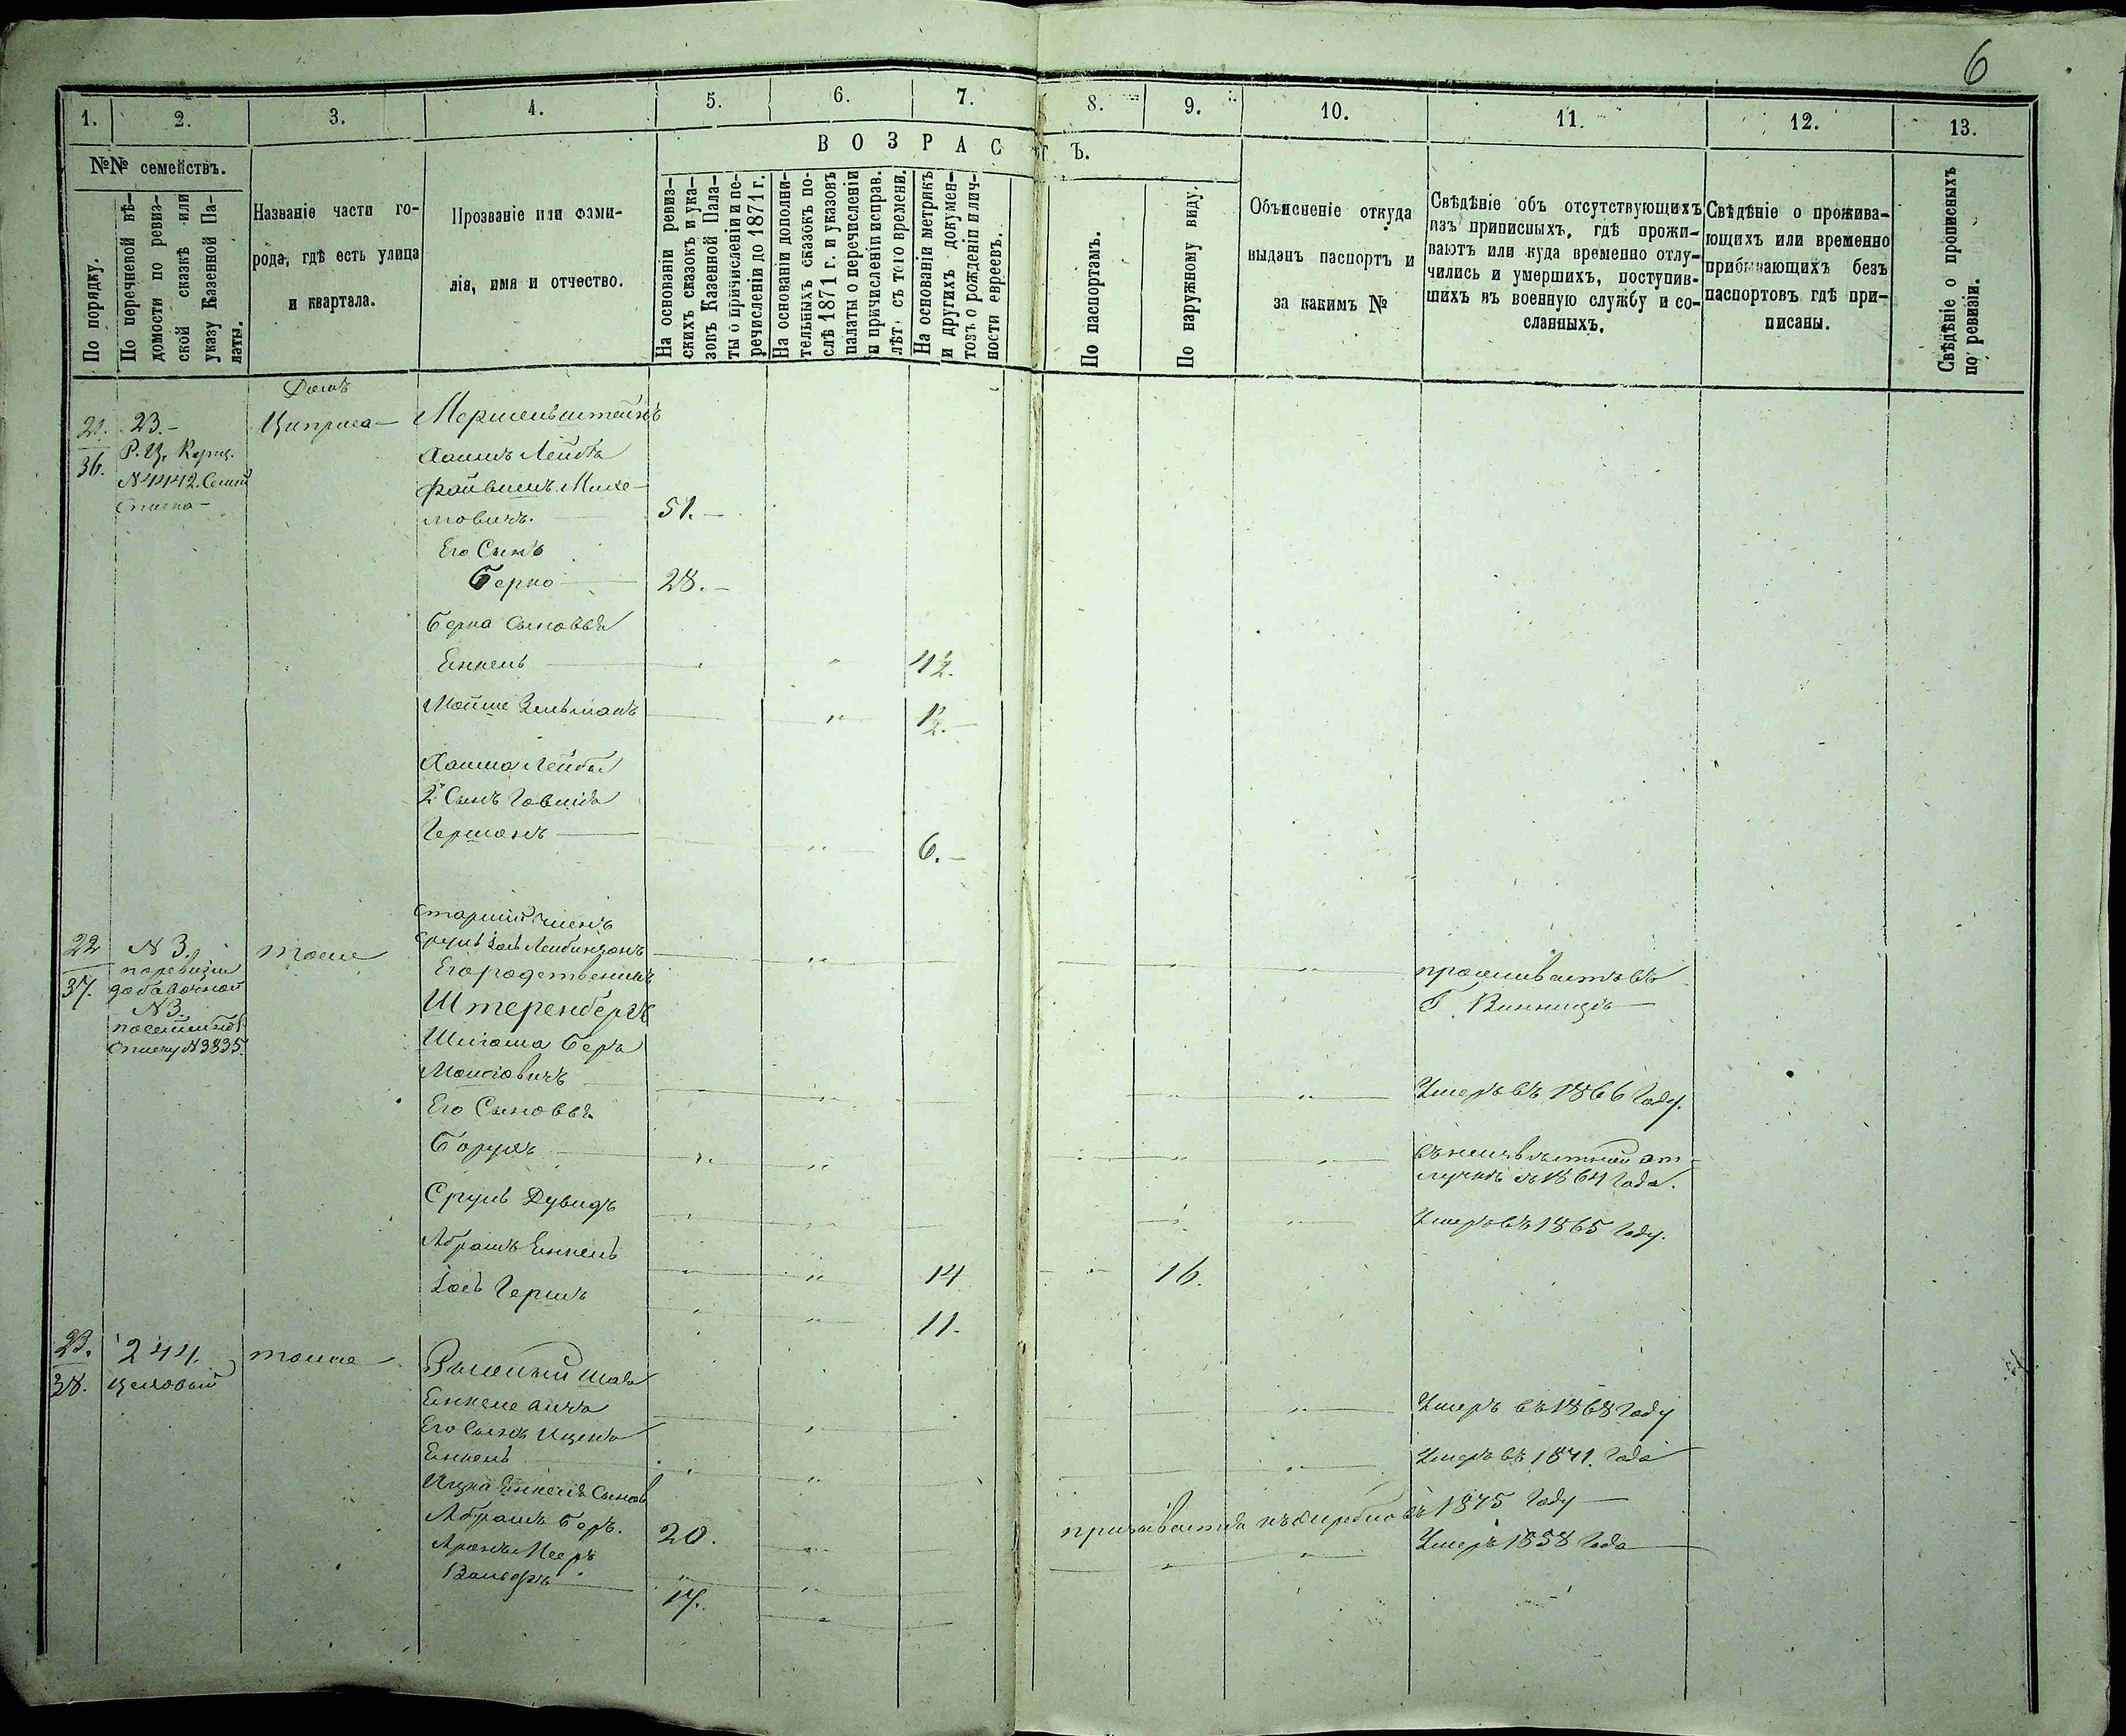 6
1. 2. 3. 4. 5. 6. 7. 8. 9. 10. 11. 12. 13.
№№ семействъ.
По порядку.
По перечневой вѣ-
домости по ревиз-
ской сказкѣ или
указу Казенной Па-
латы.
Названіе части го-
рода, гдѣ есть улица
и квартала.
Прозваніе или фами-
лія, имя и отчество.
ВОЗРАСТЪ.
На основаніи ревиз-
скихъ сказокъ и ука-
зовъ Казенной Пала-
ты о причисленіи и пе-
речисленіи до 1871 г.
На основаніи дополни-
тельныхъ сказокъ по-
слѣ 1871 г. и указовъ
палаты о перечисленіи
и причисленіи исправ.
лѣт. съ того времени.
На основаніи метрикъ
и другихъ докумен-
товъ о рожденіи и лич-
ности евреевъ.
По паспортамъ.
По наружному виду.
Объясненіе откуда
выданъ паспортъ и
за какимъ №
Свѣдѣніе объ отсутствующихъ
изъ приписныхъ, гдѣ прожи-
ваютъ или куда временно отлу-
чились и умершихъ, поступив-
шихъ въ военную службу и со-
сланныхъ.
Свѣдѣніе о прожива-
ющихъ или временно
прибывающихъ безъ
паспортовъ гдѣ при-
писаны.
Свѣдѣніе о прописныхъ
по ревизіи.
Домъ
21. 23.- Циприса-
36. N 4442.
Хаимъ Лейба
Файвишъ Михе-
лювичъ. 51.-
Его Сынъ
Берко 28.-
Берка Сыновья
Енкель 4½.
Мойше Зельманъ 1½.-
Хаима Лейбы
2й Сынъ
Гершонъ 6.-
Старшій членъ
22 N 3. тоже
Его родственникъ проживаетъ въ
37. по ревизіи добавочной
N 3. Штеренбергъ Г. Винницѣ
N 3835. Беръ
Мошковичъ Умеръ въ 1866 Году.
Его Сыновья
Борухъ въ неизвѣстной от-
лучкѣ съ 1864 Года.
Сруль Дувидъ Умеръ въ 1865 Году.
Абрамъ Енкель 14 16.
Іось Гершъ 11.
23. 244. тоже
38.
Енкелевичъ Умеръ въ 1868 Году
Его Сынъ Ицко
Енкель Умеръ въ 1871. Года
Ицка Енкеля Сынов
Абрамъ Беръ. 20. призывается къ жеребью въ 1875 Году
Аронъ Мееръ Умеръ 1858 Года
Вольфъ 17.